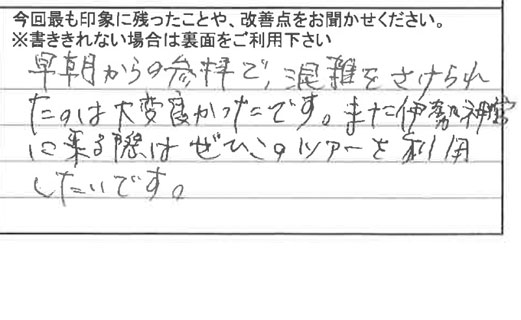 今回最も印象に残ったことや、改善点をお聞かせください。
※書ききれない場合は裏面をご利用下さい
早朝からの参拝で、混雑をさけられ
たのは大変良かったです。また伊勢神宮
に来る際はぜひこのツアーを利用
したいです。